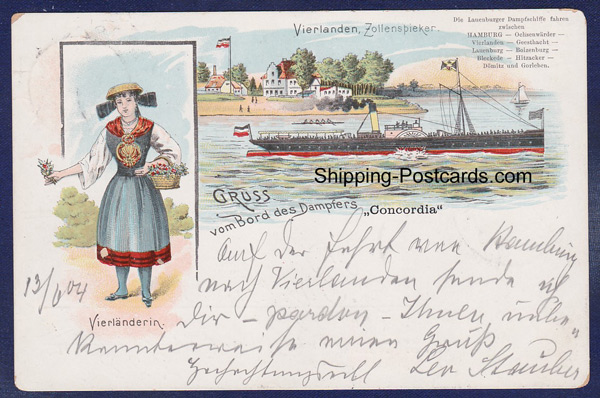 Vierlanden, Zollenspieker.
Die Lauenburger Dampfschiffe fahren
zwischen
HAMBURG — Ochsenwärder —
Vierlanden — Geesthacht —
Lauenburg — Boizenburg —
Bleckede — Hitzacker —
Dömitz und Gorleben.
Shipping-Postcards.com
GRUSS
vom Bord des Dampfers „Concordia"
Vierländerin.
13/6 04
Auf der Fahrt von Hamburg
nach Vierlanden sende ich
Dir – pardon – Ihnen unbe„
kannterweise einen Gruß
Hochachtungsvoll